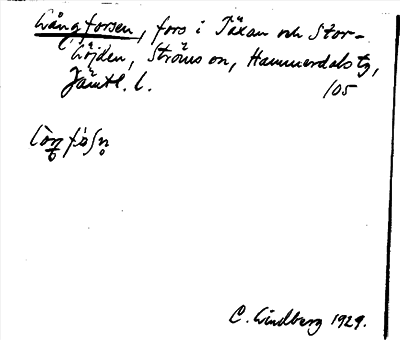 Långforsen, fors i Täxan och Stor-
höjden, Ströms sn, Hammerdals tg,
Jämtl. l. 105
C. Lindberg 1929.